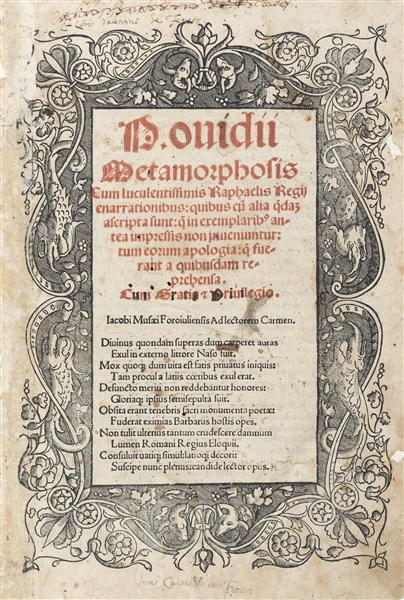 P. ouidii
Metamorphosis
Cum luculentissimis Raphaelis Regij
enarrationibus: quibus cũ alia q̃dã
ascripta sunt: q̃ in exemplaribꝰ an-
tea impressis non inueniuntur:
tum eorum apologia: q̃ fue-
rant a quibusdam re-
prehensa.
Cum Gratia ⁊ Priuilegio.
Iacobi Musæi Foroiuliensis Ad lectorem Carmen.
Diuinus quondam superas dum carperet auras
Exul in externo littore Naso fuit.
Mox quoq; dum uita est fatis priuatus iniquis:
Tam procul a latiis cœtibus exul erat.
Defuncto meriti non reddebantur honores:
Gloriaq; ipsius semisepulta fuit.
Obsita erant tenebris sacri monumenta poetæ:
Fuderat eximias Barbarus hostis opes.
Non tulit ulterius tantum crudescere damnum
Lumen Romani Regius Eloquii.
Consuluit uatiq; simul: latioq; decori:
Suscipe nunc plenus: candide lector opus.